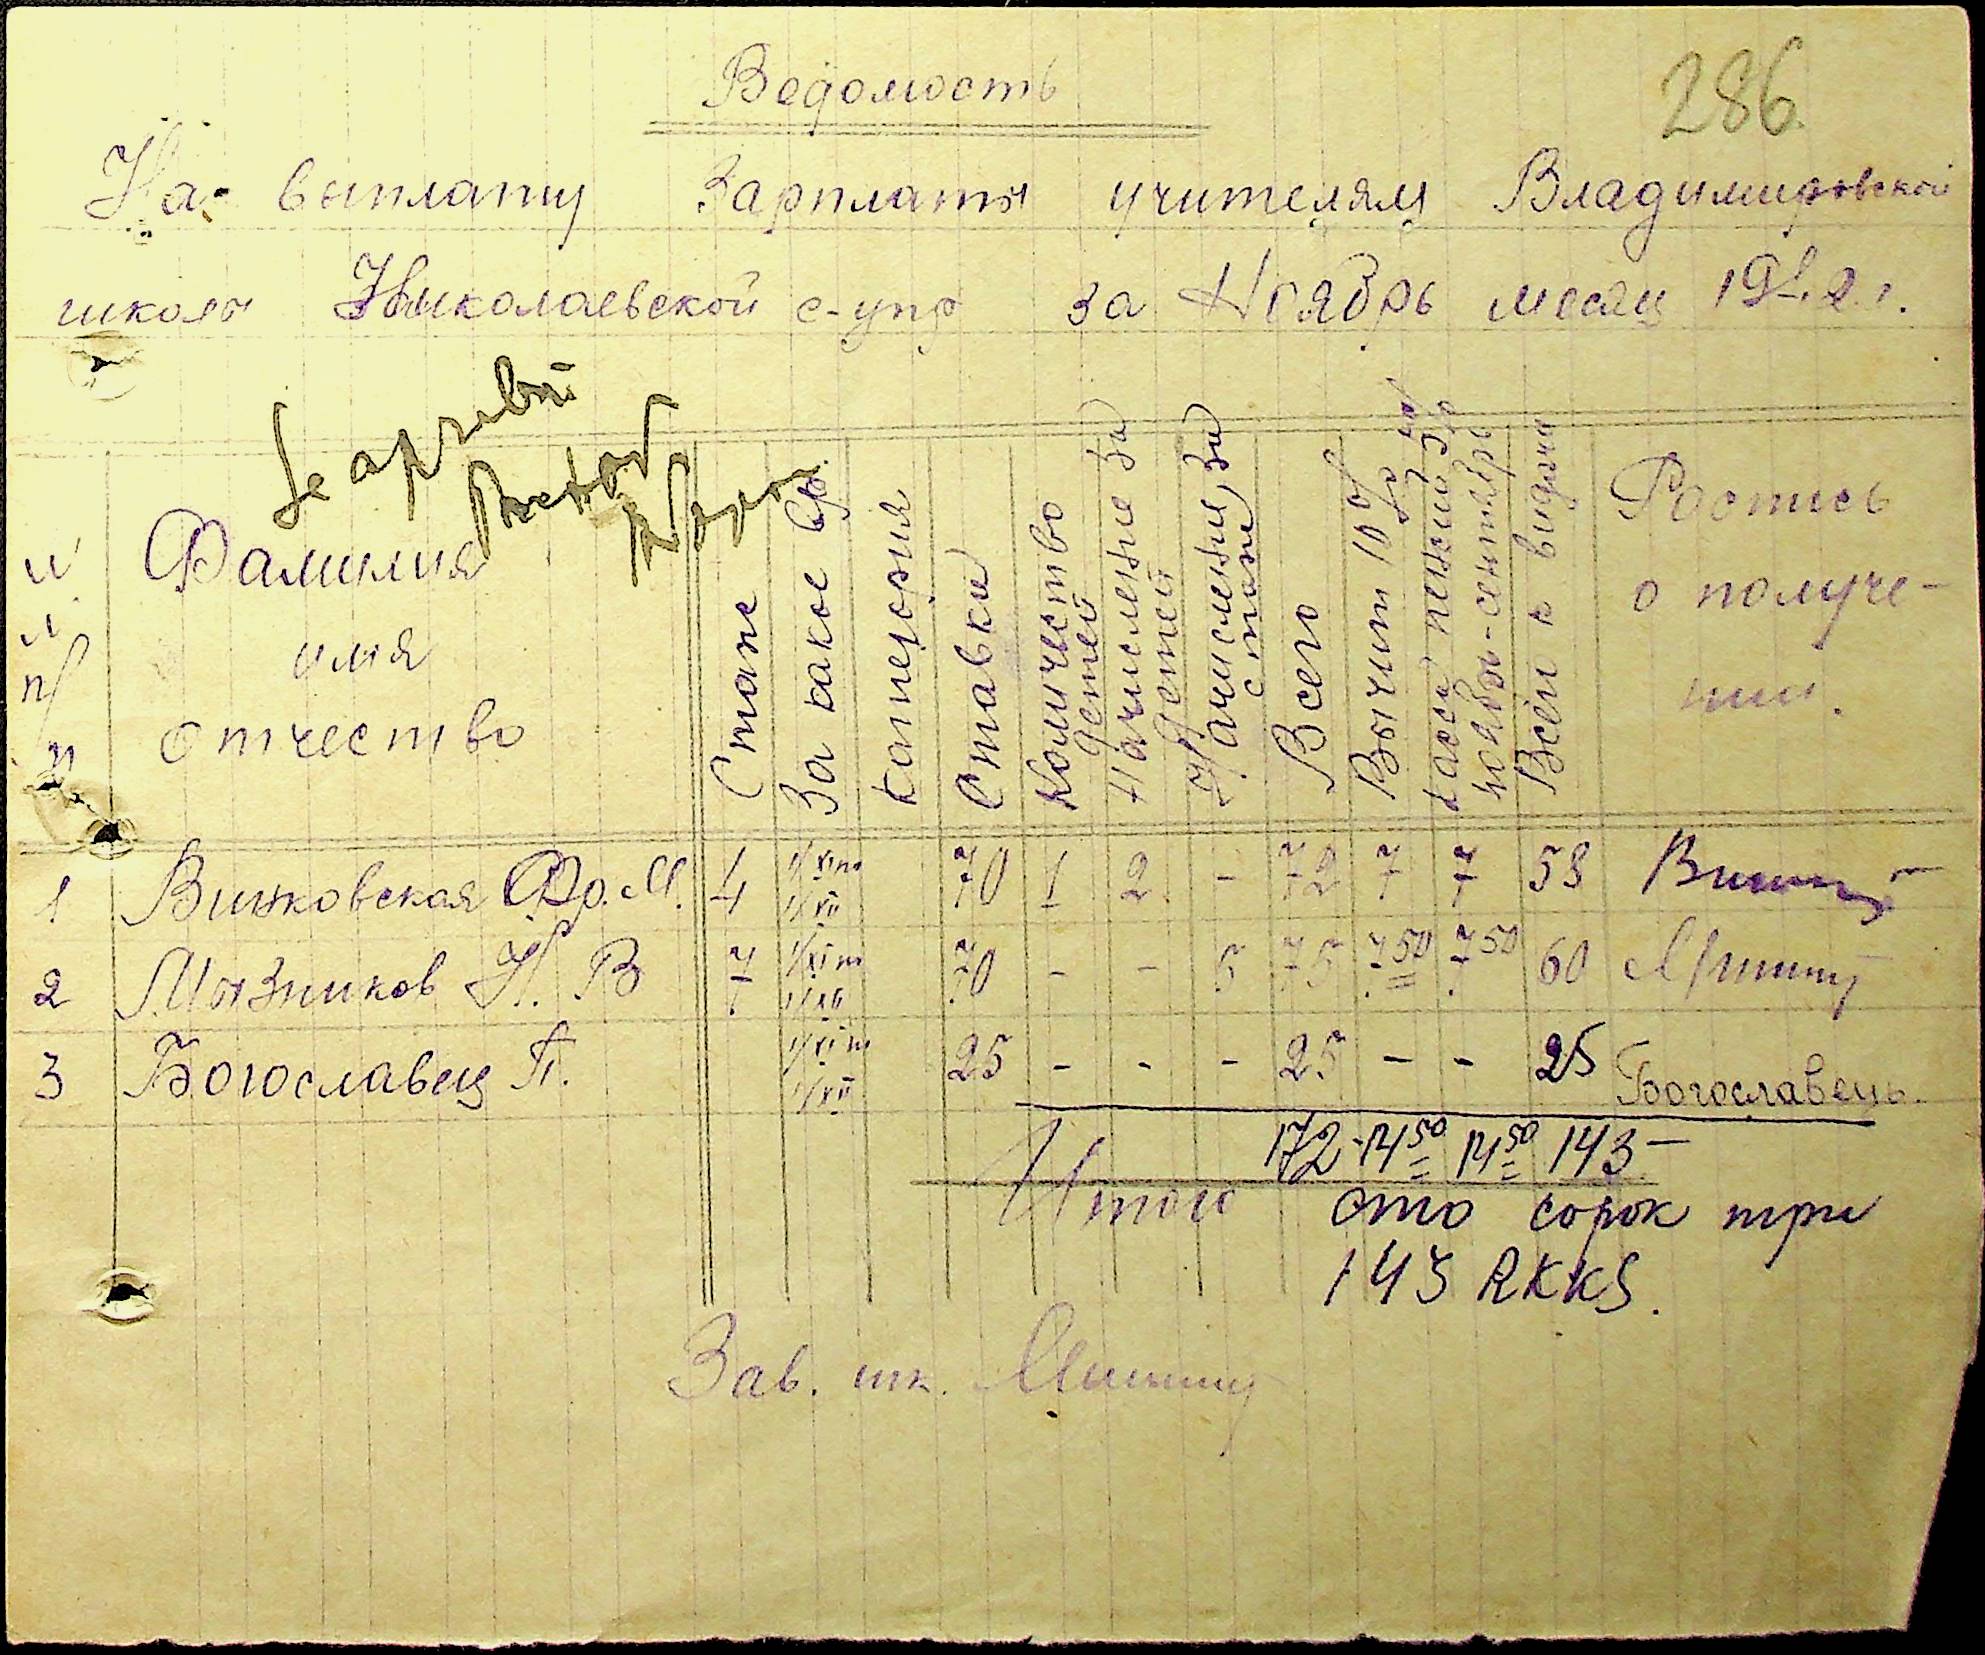 286
Ведомость
На выплату зарплаты учителям Владимировской
школы Николаевской с-упр за Ноябрь месяц 1942 г.
п/п Фамилия имя отчество Стаж За какое вр. Категория Ставки Количество детей Начисление за детей Начисление за стаж Всего Вычит 10% Всего к выдачи Роспись о получении.
1 Вижковская Фр. М. 4 1/XI по 1/XII 70 1 2 - 72 7 7 58
2 Мызников Н. В 7 1/XI по 1/XII 70 - - 5 75 7 50 7 50 60
3 Богославец П. 1/XI по 1/XII 25 - - - 25 - - 25 Богославець.
172 - 14 50 14 50 143 —
Итого сто сорок три
143 RKKS.
Зав. шк.